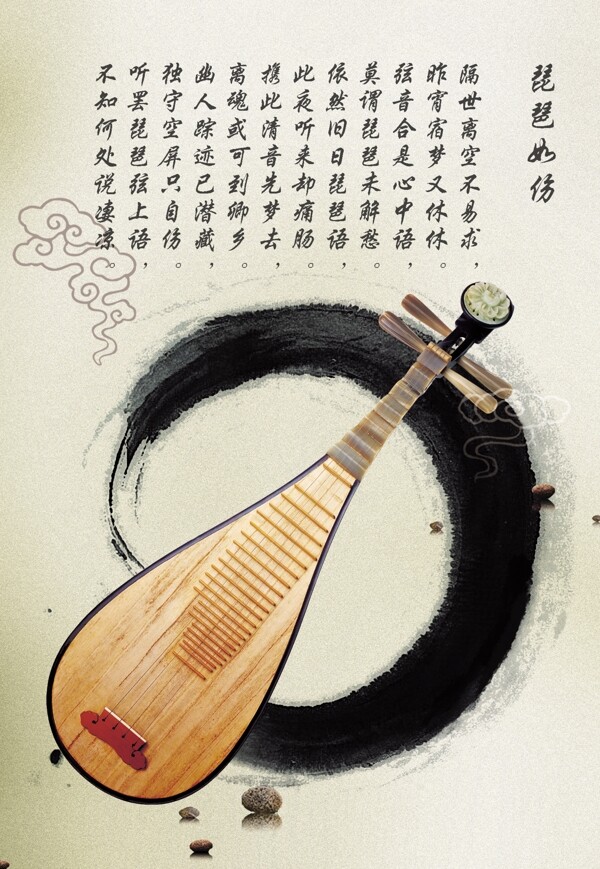 琵琶如伤
隔世离空不易求，
昨宵宿梦又休休。
弦音合是心中语，
莫谓琵琶未解愁。
依然旧日琵琶语，
此夜听来却痛肠。
携此清音先梦去，
离魂或可到卿乡。
幽人踪迹已潜藏，
独守空屏只自伤。
听罢琵琶弦上语，
不知何处说凄凉。